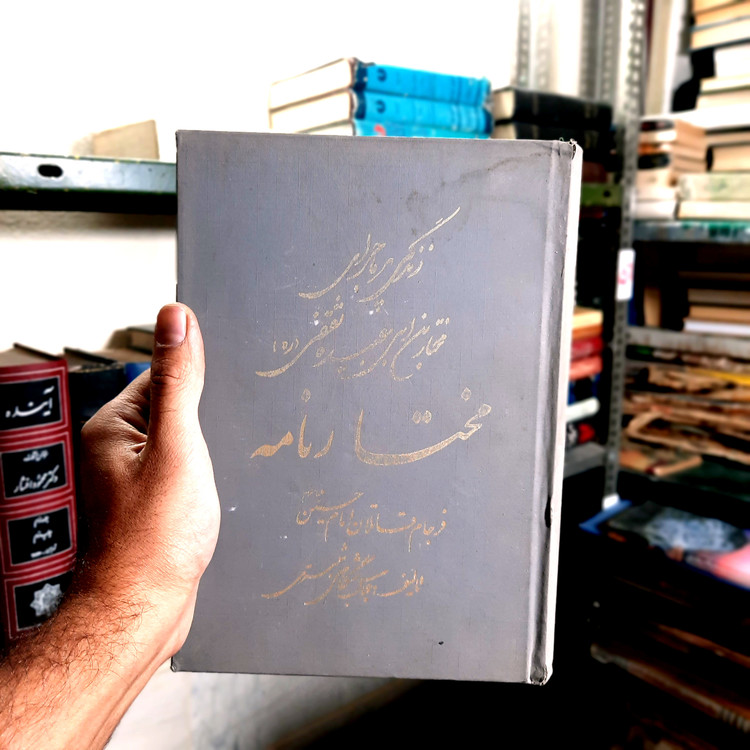 زندگی پر ماجرای
مختار بن ابی عبید ثقفی (ره)
مختار نامه
فرجام قاتلان امام حسین
تألیف
آینده
دکتر محمود افشار